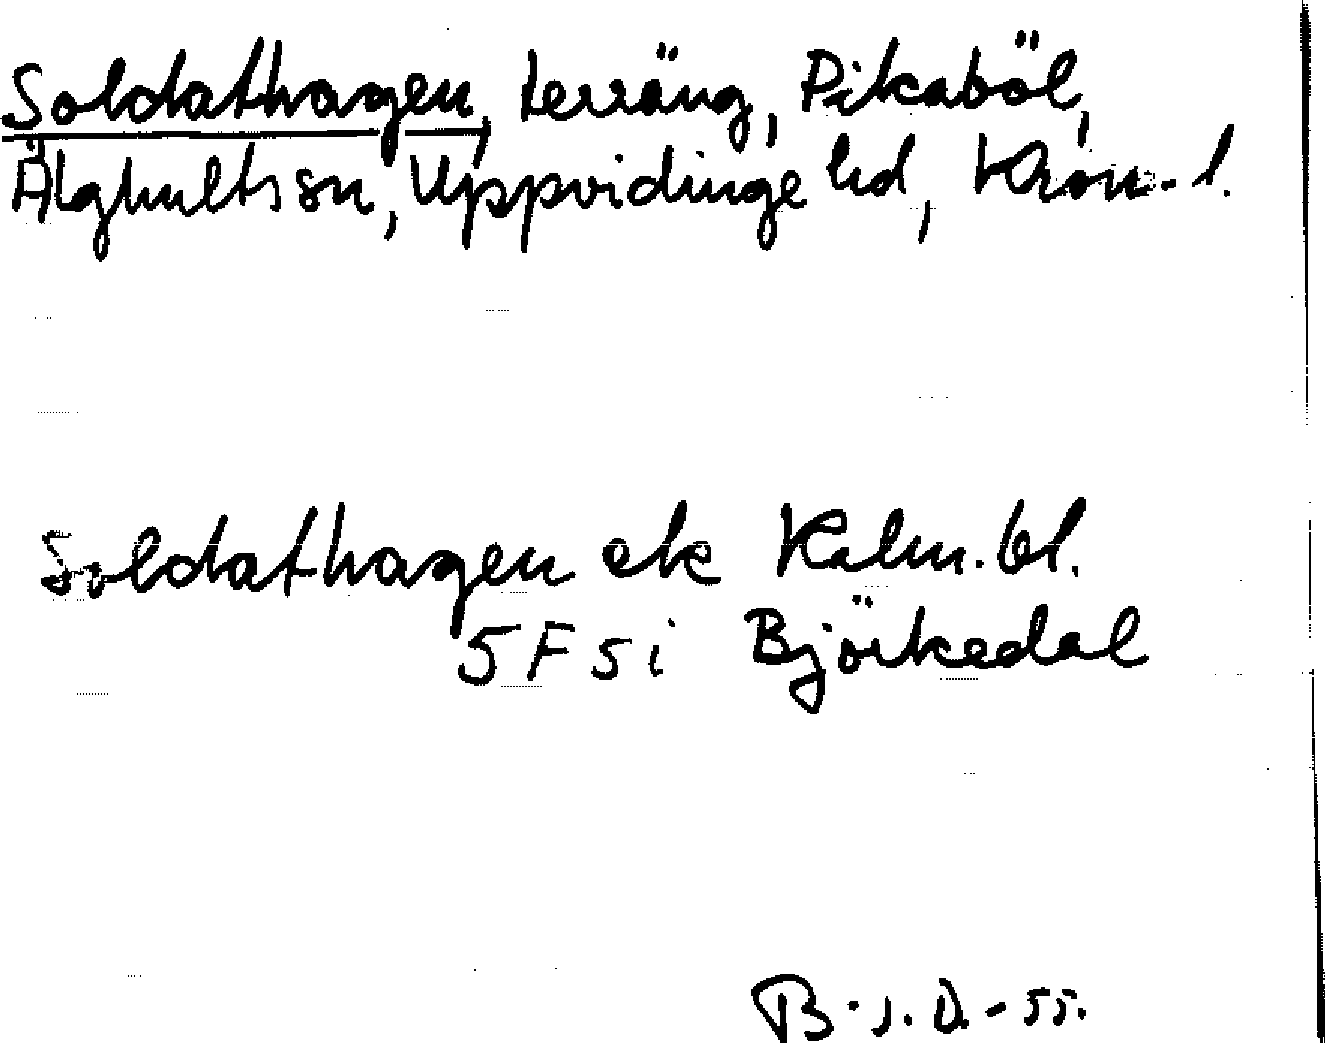 Soldathagen, terräng, Pikaböl,
Älghults sn, Uppvidinge hd, Kron. l.
Soldathagen ek Kalm. bl.
5F 5i Björkedal
B. J. D. - 55.